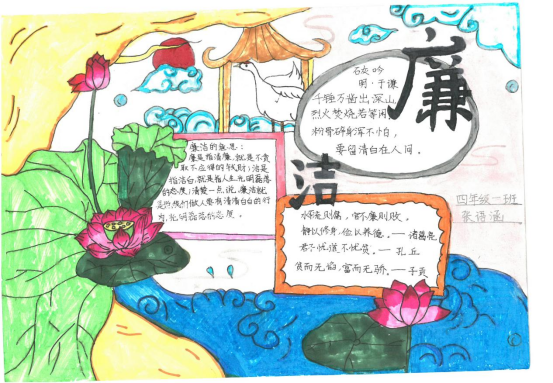 廉
洁
石灰吟
明·于谦
千锤万凿出深山,
烈火焚烧若等闲
粉骨碎身浑不怕,
要留清白在人间。
廉洁的意思:
廉是指清廉,就是不贪
取不应得的钱财;洁是
指洁白,就是指人生光明磊落
的态度;清楚一点说,廉洁就
是说我们做人要有清清白白的行
为,光明磊落的态度。
四年级一班
张语涵
静以修身,俭以养德。——诸葛亮
君子忧道不忧贫。——孔丘
贫而无谄,富而无骄。——子贡